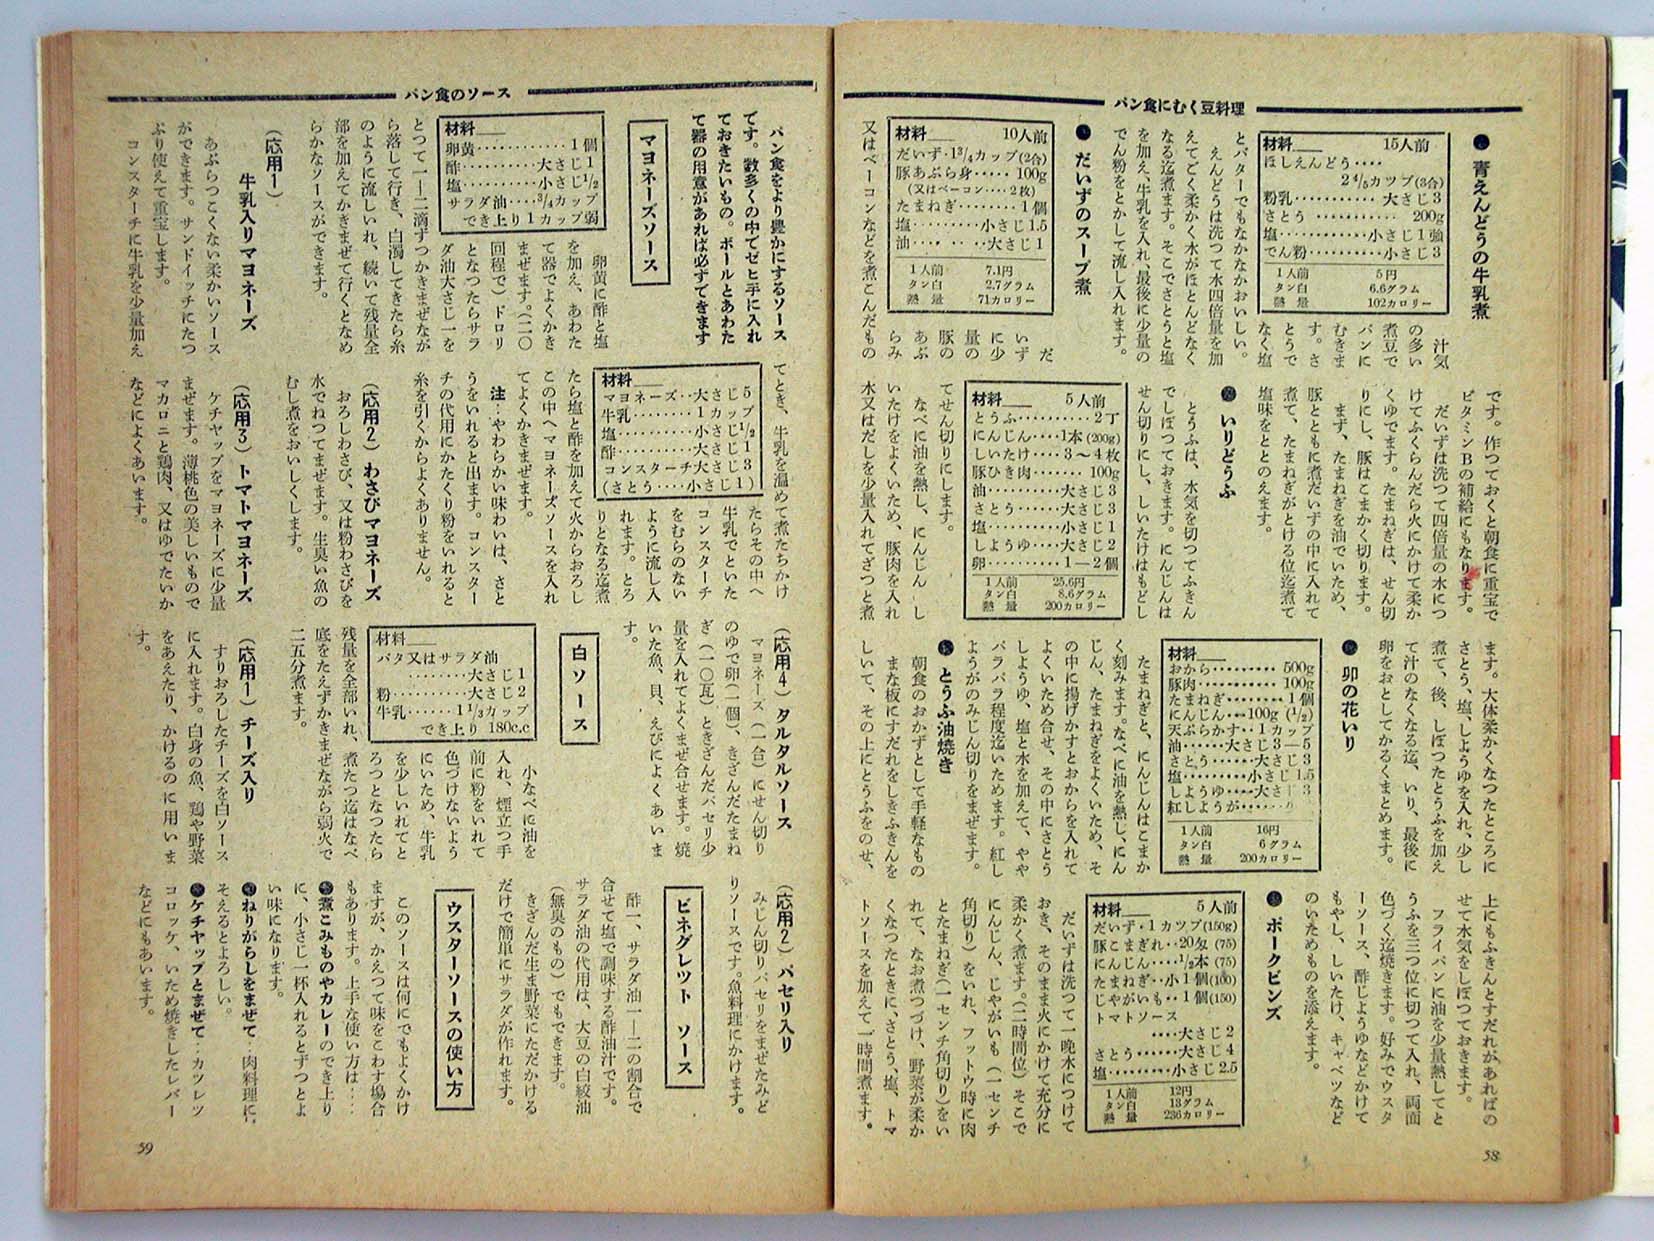 パン食にむく豆料理
青えんどうの牛乳煮
材料 15人前
ほしえんどう‥‥
2 4/5カツプ(3合)
粉乳‥‥大さじ3
さとう‥‥200g
塩‥‥小さじ1強
でん粉‥‥小さじ3
1人前 5円
タン白 6.6グラム
熱量 102カロリー
汁気
の多い
煮豆で
パンに
むきま
す。さ
とうで
なく塩
とバターでもなかなかおいしい。
えんどうは洗つて水四倍量を加
えてごく柔かく水がほとんどなく
なる迄煮ます。そこでさとうと塩
を加え、牛乳を入れ、最後に少量の
でん粉をとかして流し入れます。
だいずのスープ煮
材料 10人前
だいず‥1 3/4カツプ(2合)
豚あぶら身‥‥100g
(又はベーコン‥‥2枚)
たまねぎ‥‥1個
塩‥‥小さじ1.5
油‥‥大さじ1
1人前 7.1円
タン白 2.7グラム
熱量 71カロリー
だ
いず
に少
量の
豚の
あぶ
らみ
又はベーコンなどを煮こんだもの
です。作つておくと朝食に重宝で
ビタミンBの補給にもなります。
だいずは洗つて四倍量の水につ
けてふくらんだら火にかけて柔か
くゆでます。たまねぎは、せん切
りにし、豚はこまかく切ります。
まず、たまねぎを油でいため、
豚とともに煮だいずの中に入れて
煮て、たまねぎがとける位迄煮て
塩味をととのえます。
いりどうふ
とうふは、水気を切つてふきん
でしぼつておきます。にんじんは
せん切りにし、しいたけはもどし
材料 5人前
とうふ‥‥2丁
にんじん‥‥1本(200g)
しいたけ‥‥3～4枚
豚ひき肉‥‥100g
油‥‥大さじ3
さとう‥‥大さじ3
塩‥‥小さじ1
しようゆ‥‥大さじ2
卵‥‥1—2個
1人前 25.6円
タン白 8.6グラム
熱量 200カロリー
てせん切りにします。
なべに油を熱し、にんじん し
いたけをよくいため、豚肉を入れ
水又はだしを少量入れてざつと煮
ます。大体柔かくなつたところに
さとう、塩、しようゆを入れ、少し
煮て、後、しぼつたとうふを加え
て汁のなくなる迄、いり、最後に
卵をおとしてかるくまとめます。
卯の花いり
材料
おから‥‥500g
豚肉‥‥100g
たまねぎ‥‥1個
にんじん‥‥100g(1/2)
天ぷらかす‥‥1カツプ
油‥‥大さじ5
さとう‥‥大さじ3
塩‥‥小さじ1.5
しようゆ‥‥大さじ3
紅しようが‥‥
1人前 16円
タン白 6グラム
熱量 200カロリー
たまねぎと、にんじんはこまか
く刻みます。なべに油を熱し、にん
じん、たまねぎをよくいため、そ
の中に揚げかすとおからを入れて
よくいため合せ、その中にさとう
しようゆ、塩と水を加えて、やや
パラパラ程度迄いためます。紅し
ようがのみじん切りをまぜます。
とうふ油焼き
朝食のおかずとして手軽なもの
まな板にすだれをしきふきんを
しいて、その上にとうふをのせ、
上にもふきんとすだれがあればの
せて水気をしぼつておきます。
フライパンに油を少量熱してと
うふを三つ位に切つて入れ、両面
色づく迄焼きます。好みでウスタ
ーソース、酢じようゆなどかけて
もやし、しいたけ、キヤベツなど
のいためものを添えます。
ポークビンズ
材料 5人前
だいず‥1カツプ(150g)
豚こまぎれ‥20匁(75)
にんじん‥‥1/2本(75)
たまねぎ‥小1個(100)
じやがいも‥1個(150)
トマトソース
‥‥大さじ2
さとう‥‥大さじ4
塩‥‥小さじ2.5
1人前 12円
タン白 13グラム
熱量 236カロリー
だいずは洗つて一晩水につけて
おき、そのまま火にかけて充分に
柔かく煮ます。(二時間位)そこで
にんじん、じやがいも(一センチ
角切り)をいれ、フツトウ時に肉
とたまねぎ(一センチ角切り)をい
れて、なお煮つづけ、野菜が柔か
くなつたときに、さとう、塩、トマ
トソースを加えて一時間煮ます。
58
パン食のソース
パン食をより豊かにするソース
です。数多くの中でゼヒ手に入れ
ておきたいもの。ボールとあわた
て器の用意があれば必ずできます
マヨネーズソース
材料
卵黄‥‥1個
酢‥‥大さじ1
塩‥‥小さじ1/2
サラダ油‥‥3/4カツプ
でき上り1カツプ弱
卵黄に酢と塩
を加え、あわた
て器でよくかき
まぜます。(二〇
回程で)ドロリ
となつたらサラ
ダ油大さじ一を
とつて一—二滴ずつかきまぜなが
ら落して行き、白濁してきたら糸
のように流しいれ、続いて残量全
部を加えてかきまぜて行くとなめ
らかなソースができます。
(応用1)
牛乳入りマヨネーズ
あぶらつこくない柔かいソース
ができます。サンドイッチにたつ
ぷり使えて重宝します。
コンスターチに牛乳を少量加え
てとき、牛乳を温めて煮たちかけ
材料
マヨネーズ‥大さじ5
牛乳‥‥1カツプ
塩‥‥小さじ1/2
酢‥‥大さじ1
コンスターチ大さじ3
(さとう‥‥小さじ1)
たらその中へ
牛乳でといた
コンスターチ
をむらのない
ように流し入
れます。とろ
りとなる迄煮
たら塩と酢を加えて火からおろし
この中へマヨネーズソースを入れ
てよくかきまぜます。
注‥やわらかい味わいは、さと
うをいれると出ます。コンスター
チの代用にかたくり粉をいれると
糸を引くからよくありません。
(応用2) わさびマヨネーズ
おろしわさび、又は粉わさびを
水でねつてまぜます。生臭い魚の
むし煮をおいしくします。
(応用3) トマトマヨネーズ
ケチヤップをマヨネーズに少量
まぜます。薄桃色の美しいもので
マカロニと鶏肉、又はゆでたいか
などによくあいます。
(応用4) タルタルソース
マヨネーズ(一合)にせん切り
のゆで卵(一個)、きざんだたまね
ぎ(一〇瓦)ときざんだパセリ少
量を入れてよくまぜ合せます。焼
いた魚、貝、えびによくあいま
す。
白ソース
材料
バタ又はサラダ油
‥‥大さじ1
粉‥‥大さじ2
牛乳‥‥1 1/3カツプ
でき上り 180c.c
小なべに油を
入れ、煙立つ手
前に粉をいれて
色づけないよう
にいため、牛乳
を少しいれてと
ろつとなつたら
残量を全部いれ、煮たつ迄はなべ
底をたえずかきまぜながら弱火で
二五分煮ます。
(応用1) チーズ入り
すりおろしたチーズを白ソース
に入れます。白身の魚、鶏や野菜
をあえたり、かけるのに用いま
す。
(応用2) パセリ入り
みじん切りパセリをまぜたみど
りソースです。魚料理にかけます。
ビネグレツト ソース
酢一、サラダ油一—二の割合で
合せて塩で調味する酢油汁です。
サラダ油の代用は、大豆の白絞油
(無臭のもの)でもできます。
きざんだ生ま野菜にただかける
だけで簡単にサラダが作れます。
ウスターソースの使い方
このソースは何にでもよくかけ
ますが、かえつて味をこわす場合
もあります。上手な使い方は‥‥
●煮こみものやカレーのでき上り
に、小さじ一杯入れるとずつとよ
い味になります。
●ねりがらしをまぜて‥肉料理に
そえるとよろしい。
●ケチヤップとまぜて‥カツレツ
コロッケ、いため焼きしたレバー
などにもあいます。
59